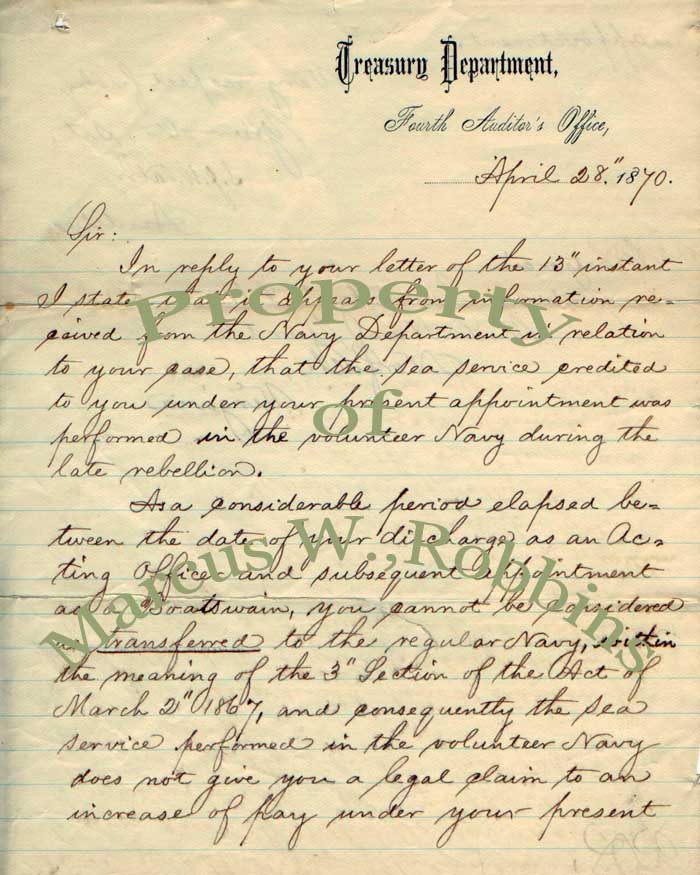 Treasury Department,
Fourth Auditor's Office,
April 28." 1870.
Sir:
In reply to your letter of the 13" instant
I state that it appears from information re-
ceived from the Navy Department in relation
to your case, that the sea service credited
to you under your present appointment was
performed in the volunteer Navy during the
late rebellion.
As a considerable period elapsed be-
tween the date of your discharge as an Ac-
ting Officer and subsequent appointment
as a Boatswain, you cannot be considered
as transferred to the regular Navy, within
the meaning of the 3" Section of the Act of
March 2" 1867, and consequently the sea
service performed in the volunteer Navy
does not give you a legal claim to an
increase of pay under your present
Property
of
Marcus W., Robbins